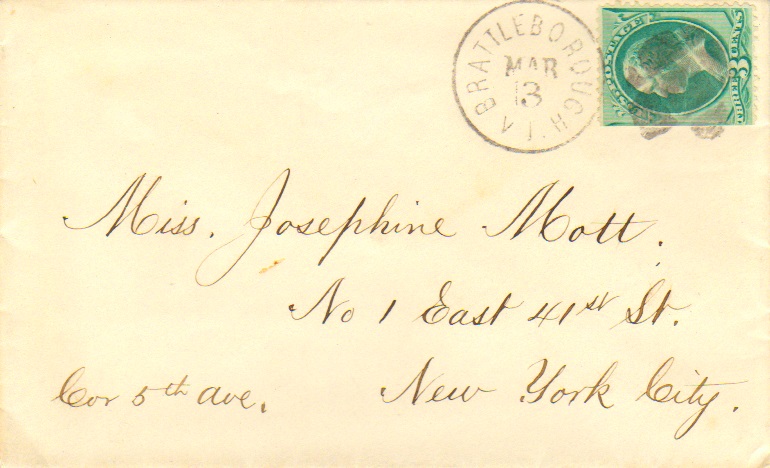 BRATTLEBOROUGH VT.
MAR
13
Miss. Josephine Mott.
No 1 East 41st St.
Cor 5th ave. New York City.